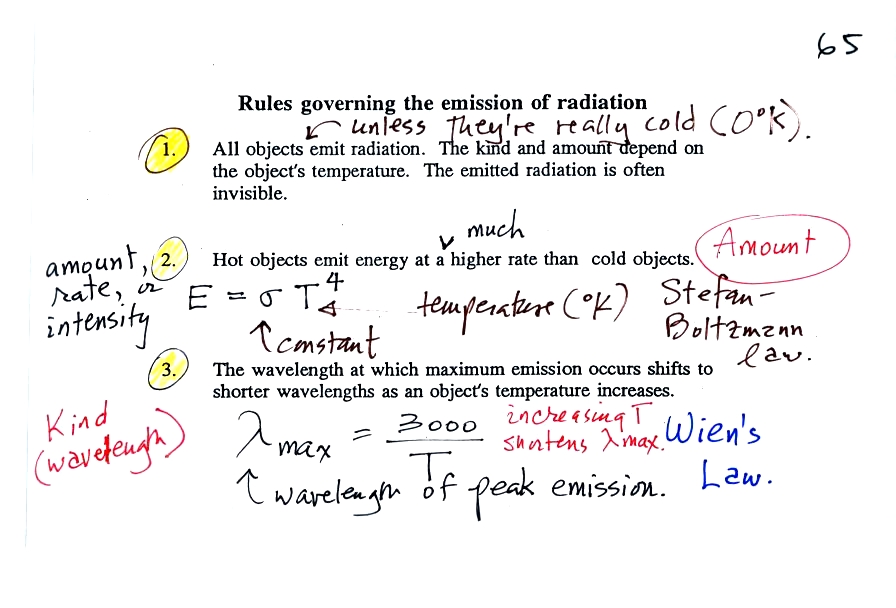 65
Rules governing the emission of radiation
unless they're really cold (0°K).
1. All objects emit radiation. The kind and amount depend on
the object's temperature. The emitted radiation is often
invisible.
much
2. Hot objects emit energy at a higher rate than cold objects.
Amount
amount,
rate, or
intensity
E = σ T⁴
temperature (°K)
Stefan-
Boltzmann
law.
↑ constant
3. The wavelength at which maximum emission occurs shifts to
shorter wavelengths as an object's temperature increases.
Kind
(wavelength)
λmax = 3000 / T
increasing T
shortens λmax.
Wien's
Law.
↑ wavelength of peak emission.